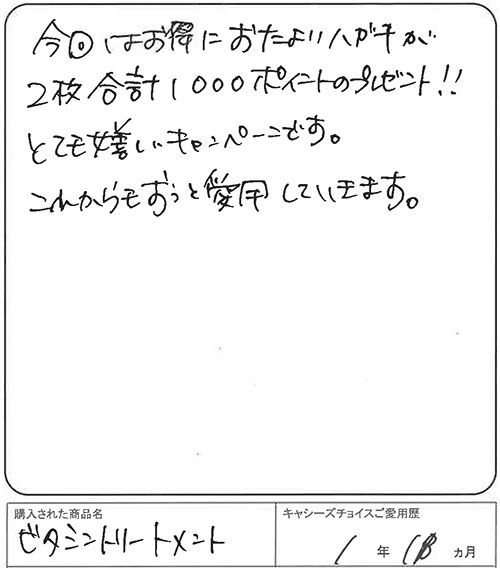 今回はお得におたよりハガキが
2枚合計1000ポイントのプレゼント!!
とても嬉しいキャンペーンです。
これからもずっと愛用していきます。
購入された商品名
ビタミントリートメント
キャシーズチョイスご愛用歴
1年 ヵ月